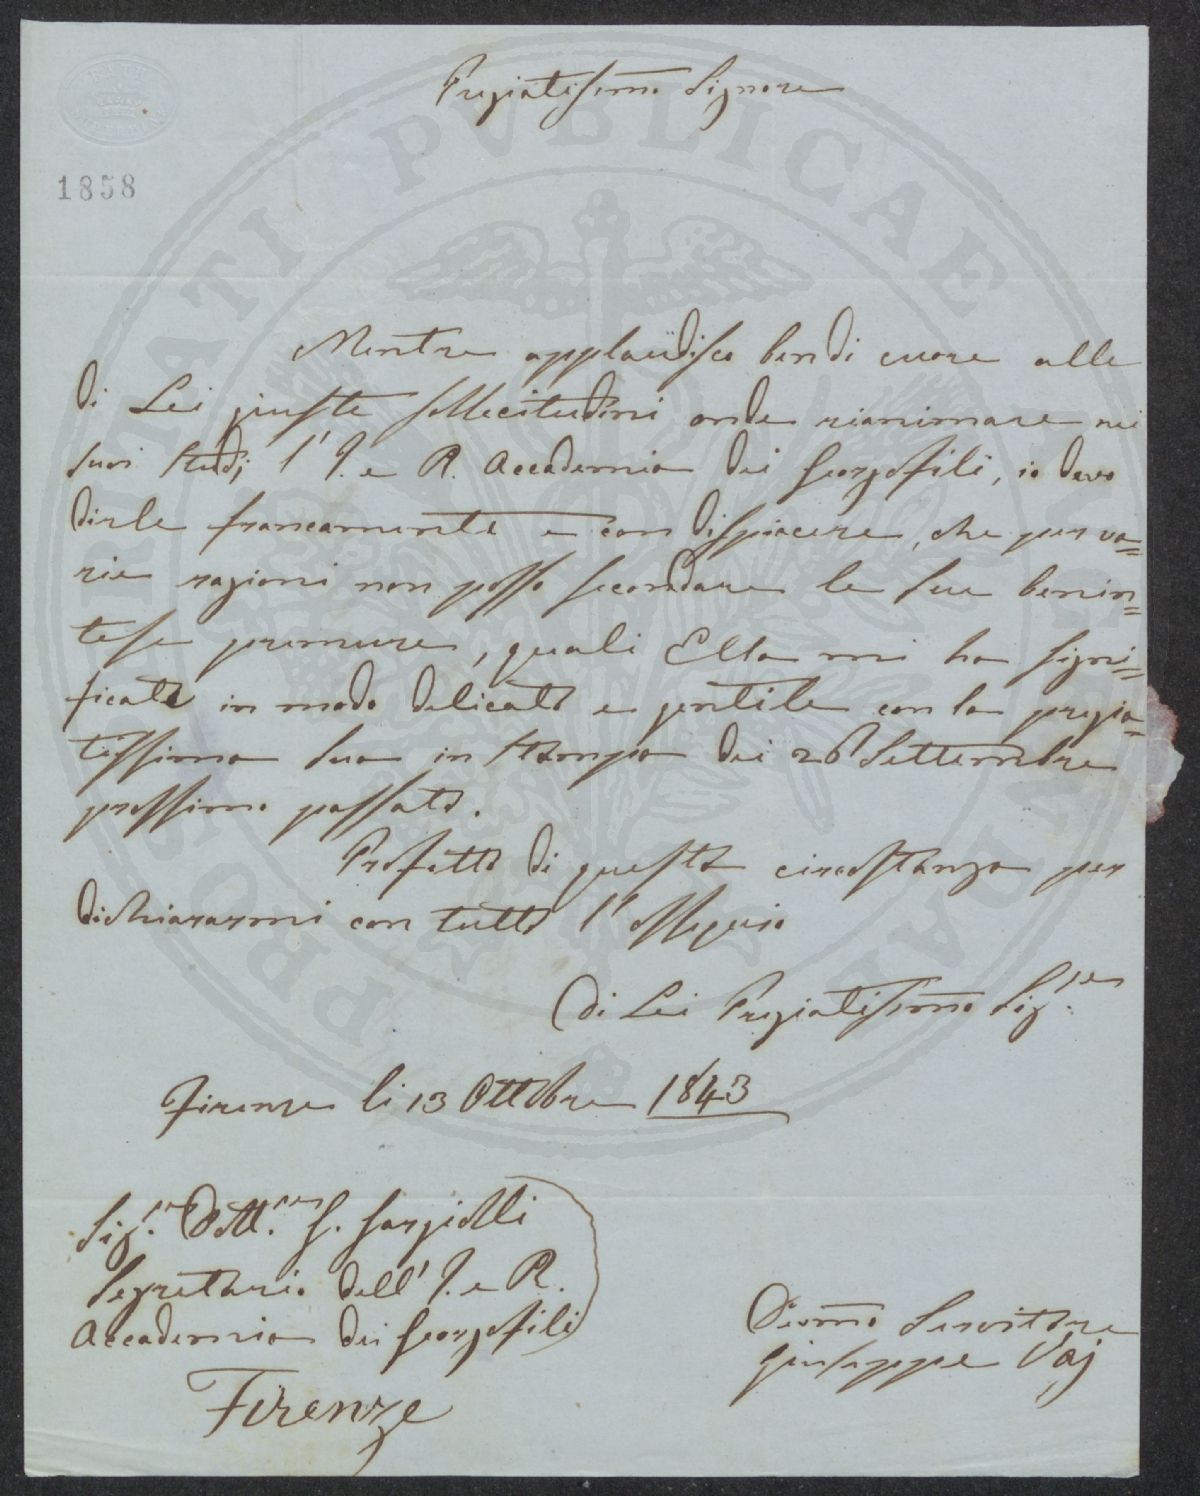 Pregiatissimo Signore
1858
Mentre applaudisco ben di cuore alle
di Lei giuste sollecitudini onde rianimare nei
suoi studj l' I. e R. Accademia dei Georgofili, io devo
dirle francamente e con dispiacere, che per va=
rie ragioni non posso secondare le sue benin=
tese premure, quali Ella mi ha signi=
ficate in modo delicato e gentile con la pregia=
tissima sua in stampa dei 26 Settembre
prossimo passato.
Profitto di questa circostanza per
dichiararmi con tutto l' ossequio
Di Lei Pregiatissimo Sig.re
Firenze li 13 Ottobre 1843
Sig.r Dott.re G. Gargiolli
Segretario dell' I. e R.
Accademia dei Georgofili
Firenze
Devmo Servitore
Giuseppe Vaj
PROSPERITATI PVBLICAE AVGENDAE